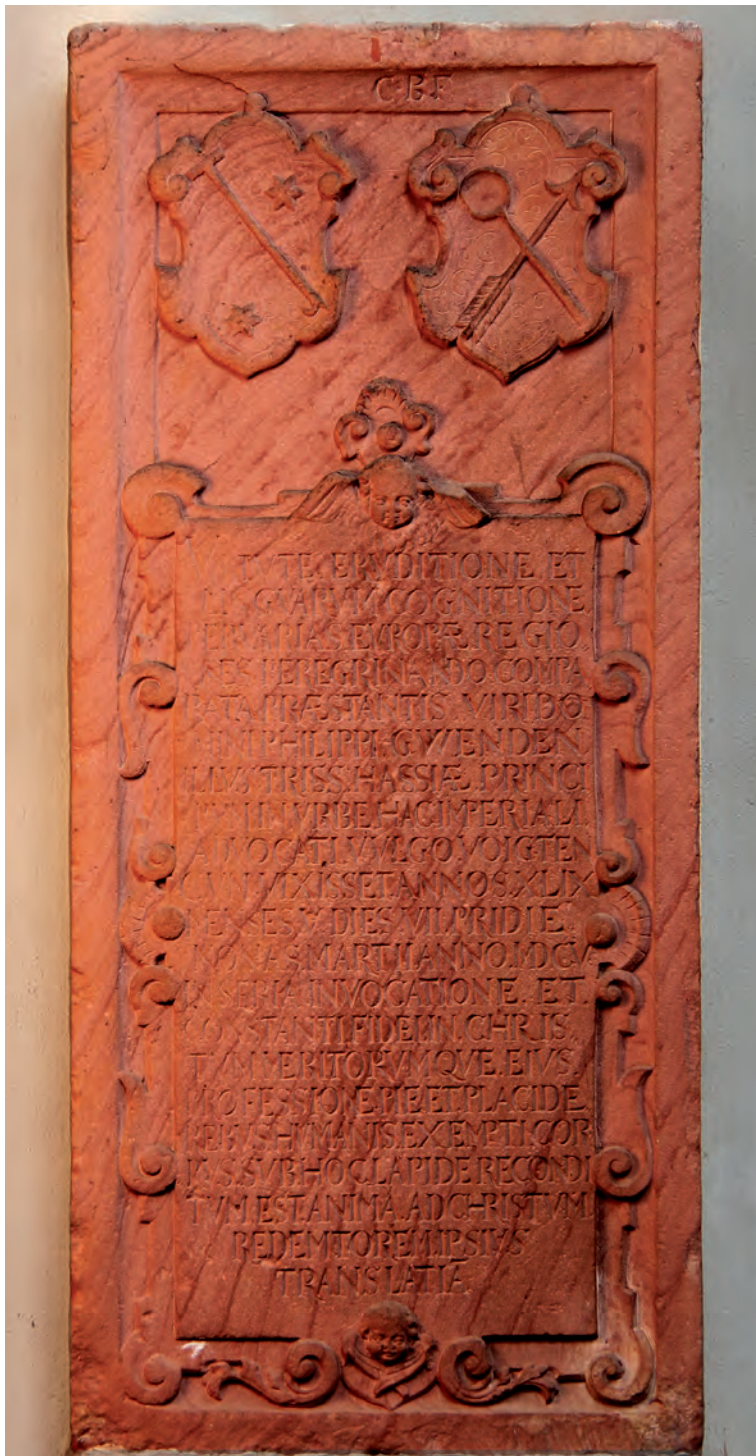 C B F
TVTE. ERVDITIONE. ET
COGNITIONE
PER. VARIAS. EVROPÆ. REGIO
NES. PEREGRINANDO. COMPA
RATA. PRÆSTANTIS. VIRI. DO
MINI. PHILIPPI. GWENDEN.
ILLVSTRISS. HASSIÆ. PRINCI
PVM. IN. VRBE. HAC. IMPERIALI.
ADVOCATI. VVLGO. VOIGTEN
CVM. VIXISSET. ANNOS. XLIX
MENSES. V. DIES. VII. PRIDIE.
NONAS. MARTII. ANNO. MDCV
IN. SERIA. INVOCATIONE. ET.
CONSTANTI. FIDEI. IN. CHRIS
TVM. MERITORVMQVE. EIVS.
PROFESSIONE. PIE. ET. PLACIDE.
REBVS. HVMANIS. EXEMPTI. COR
PVS. SVB. HOC. LAPIDE. RECONDI
TVM. EST. ANIMA. AD. CHRISTVM.
REDEMTOREM. IPSIVS
TRANSLATA